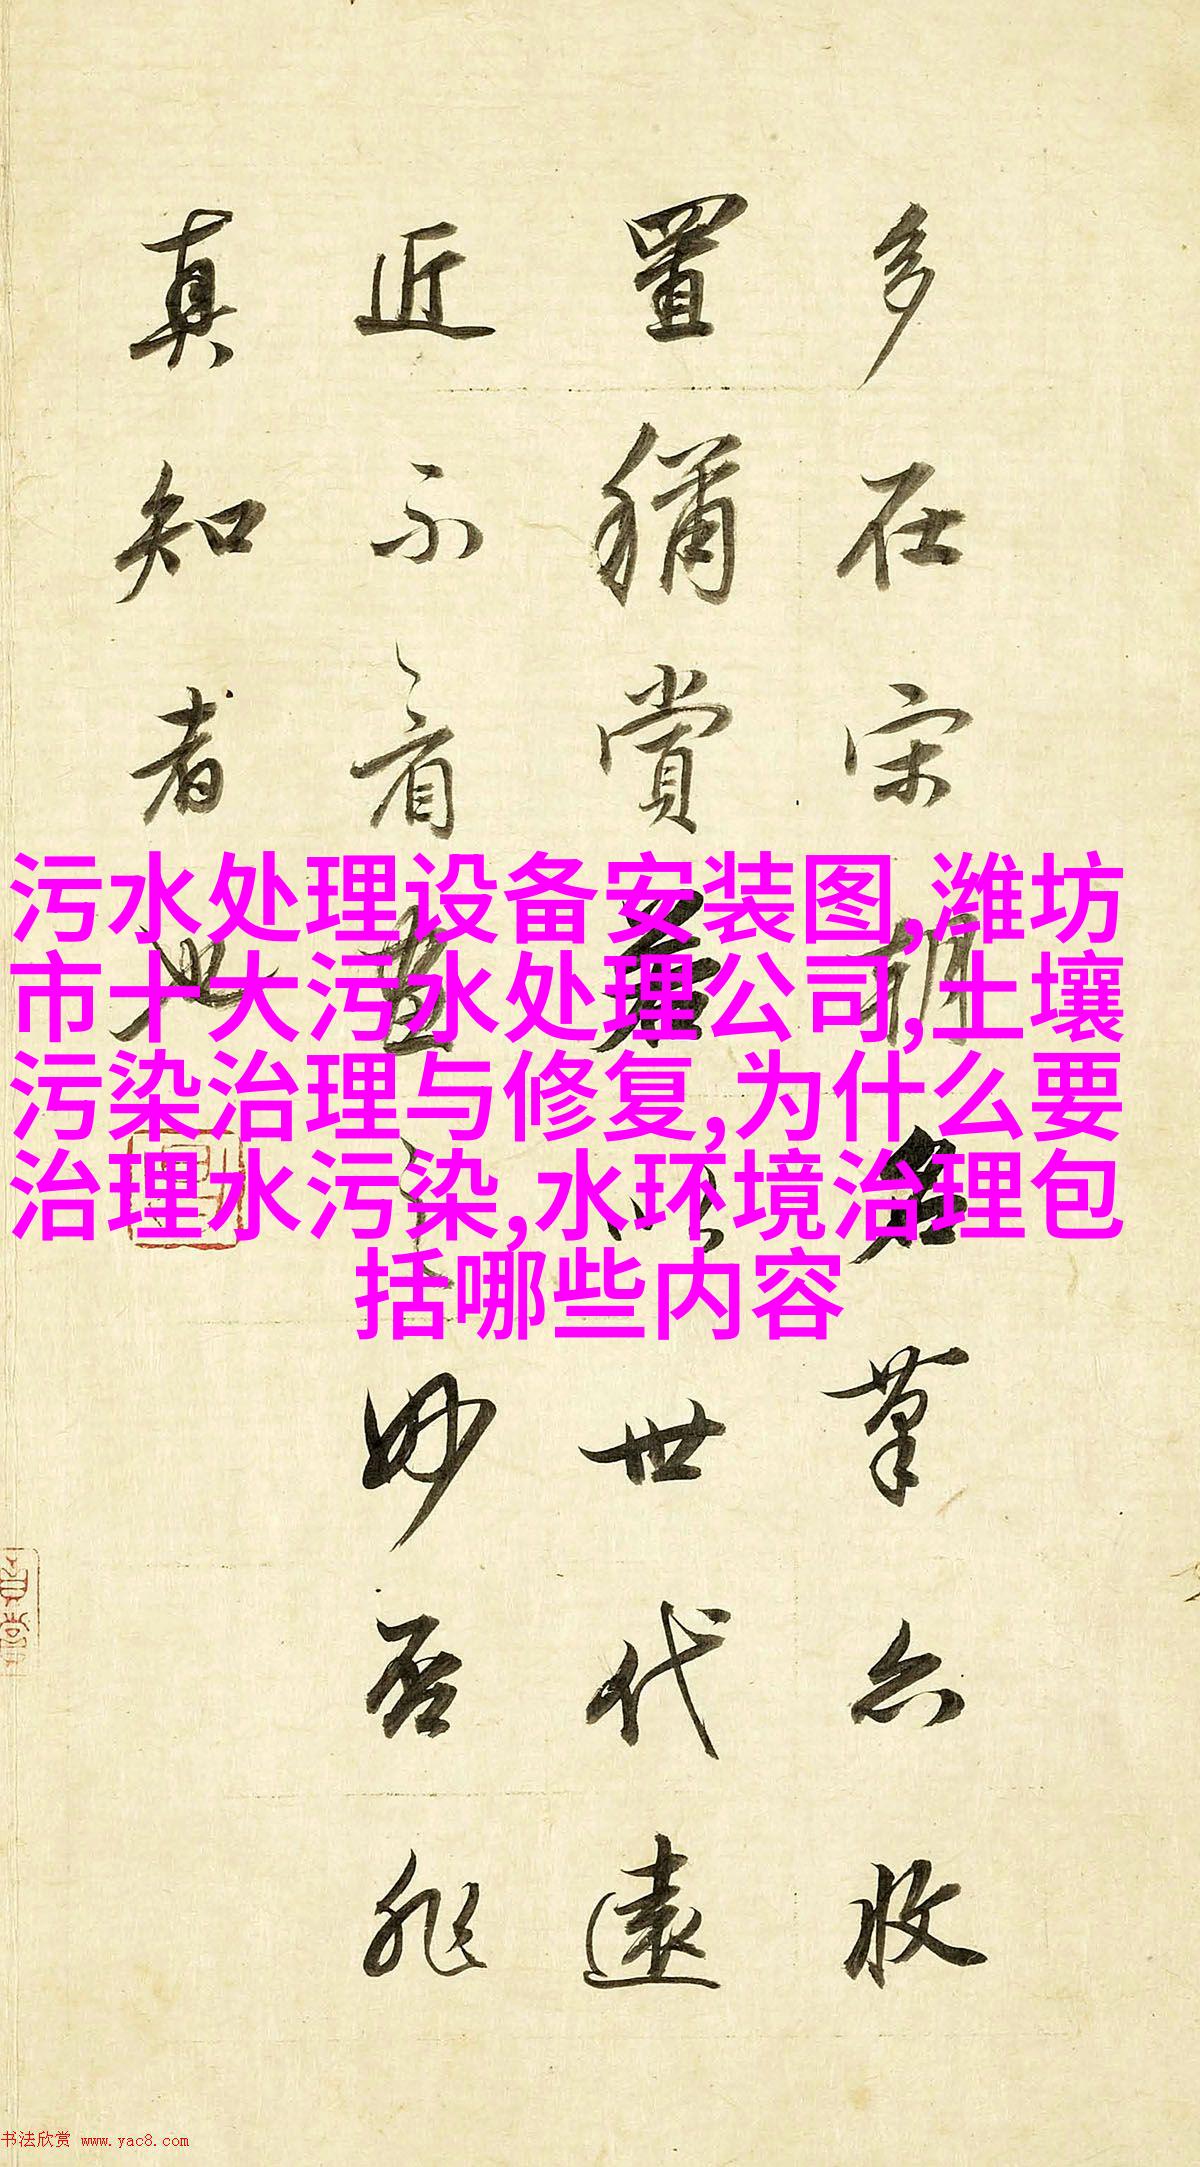 多在宋朝名筆亦收
置稱賞兼以世代遠
近不看畫之妙否非
真知者也
污水处理设备安装图,潍坊
市十大污水处理公司,土壤
污染治理与修复,为什么要
治理水污染,水环境治理包
括哪些内容
书法欣赏 www.yac8.com